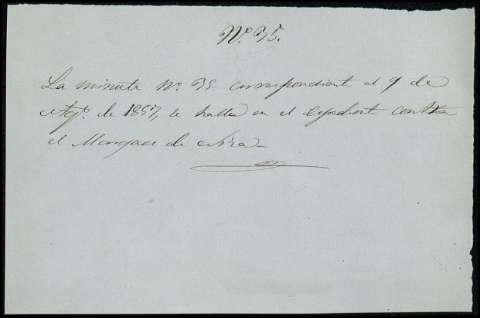 Nº 35.
La minuta Nº 35. correspondiente al 9 de
Agto. de 1857, se halla en el Expediente contra
el Marques de